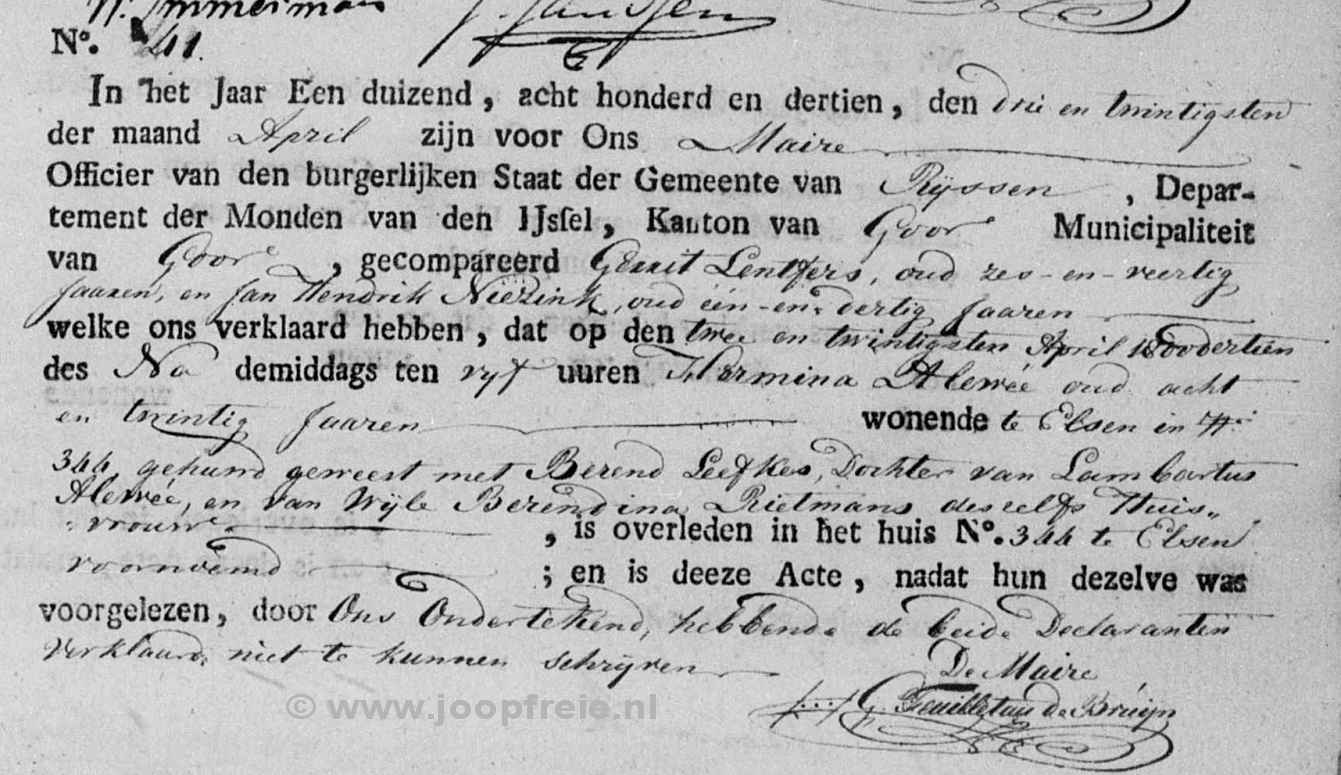 W. Immerman J. Janssen
N°. 41.
In het Jaar Een duizend, acht honderd en dertien, den drie en twintigsten
der maand April zijn voor Ons Maire
Officier van den burgerlijken Staat der Gemeente van Ryssen, Depar-
tement der Monden van den IJssel, Kanton van Goor Municipaliteit
van Goor, gecompareerd Gerrit Lentfers, oud zes-en-veertig
Jaaren, en Jan Hendrik Niezink, oud één-en-dertig Jaaren
welke ons verklaard hebben, dat op den twee en twintigsten April 18oodertien
des Na demiddags ten vyf uuren Hermina Alewée oud acht
en twintig Jaaren wonende te Elsen in N°
344, gehuwd geweest met Berend Leefkes, Dochter van Lambartus
Alewée, en van Wyle Berendina Rietmans deszelfs Huis„
vrouw, is overleden in het huis N°. 344 te Elsen
voornoemd ; en is deeze Acte, nadat hun dezelve was
voorgelezen, door Ons Ondertekend, hebbende de beide Declaranten
verklaard niet te kunnen schryven
De Maire
G. Feuilletau de Bruyn
© www.joopfreie.nl